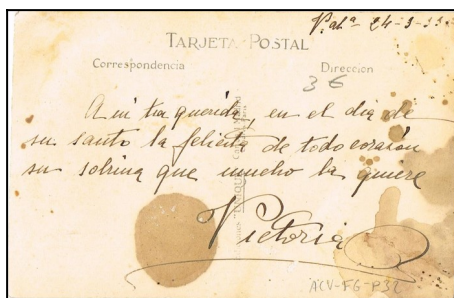 24-3-33
TARJETA POSTAL
Correspondencia
Direccion
36
A mi tia querida, en el dia de
su santo la felicita de todo corazón
su sobrina que mucho la quiere
Victoria
ACV-F6-P32